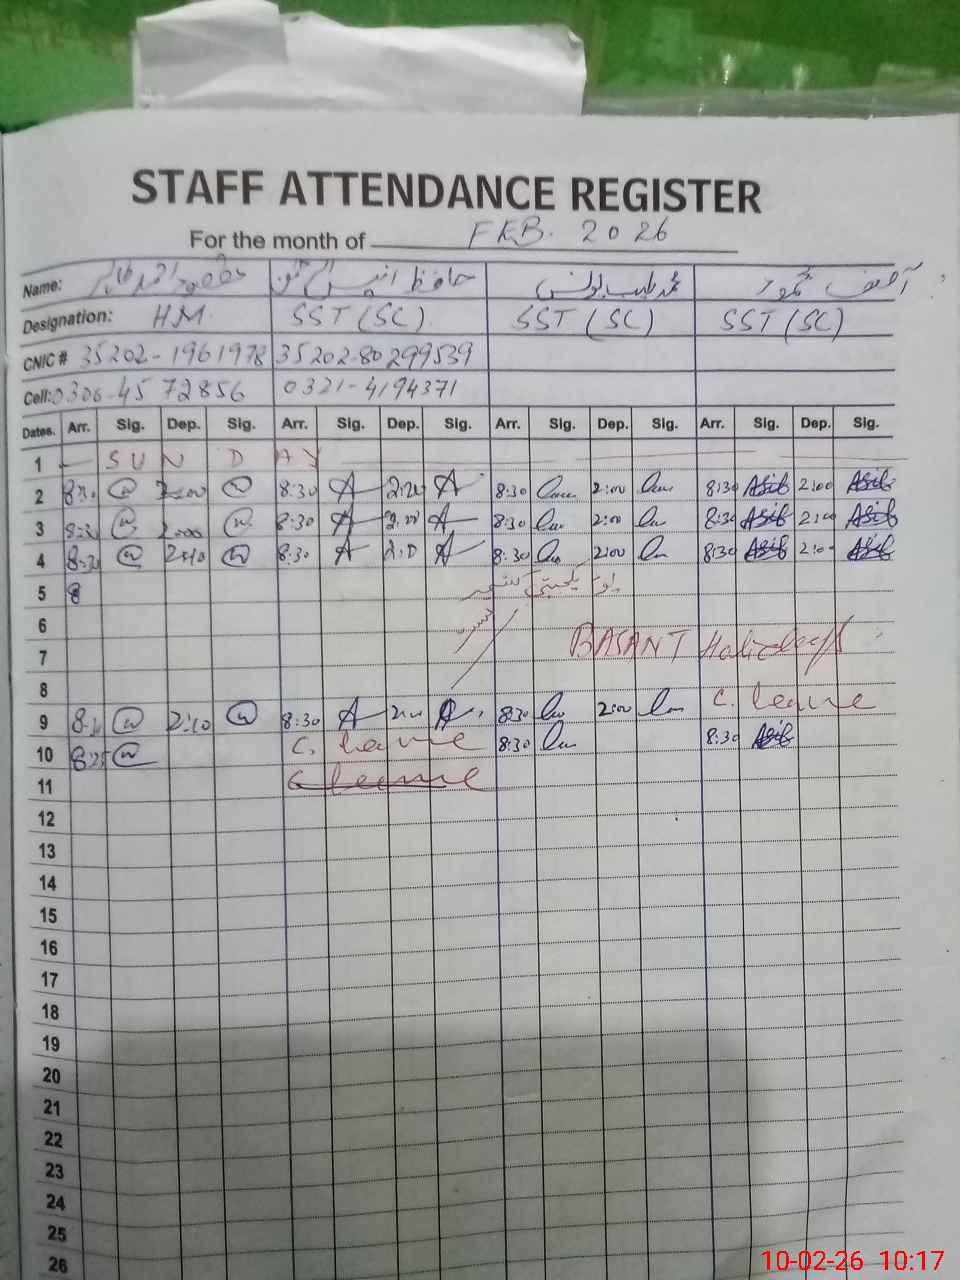 STAFF ATTENDANCE REGISTER
For the month of FEB. 2026
Name: حافظ انیس محمد طیب یونس آصف محمود
Designation: HM. SST (SC) SST (SC) SST (SC)
CNIC # 35202-1961978 35202-80299539
Cell: 0306-4572856 0321-4194371
Dates. Arr. Sig. Dep. Sig. Arr. Sig. Dep. Sig. Arr. Sig. Dep. Sig. Arr. Sig. Dep. Sig.
1 SUNDAY
2 8:30 2:00 8:30 A A 8:30 2:00 8:30 Asif 2:00 Asif
3 8:30 2:00 8:30 A 2:00 A 8:30 2:00 8:30 Asif 2:00 Asif
4 8:30 2:10 8:30 A A 8:30 2:00 8:30 Asif 2:0 Asif
5 8 یوم یکجہتی کشمیر
6
7 BASANT Holidays
8
9 2:10 8:30 A A 8:30 2:00 C. leave
10 8:25 C. leave 8:30 8:30 Asif
11 C leave
12
13
14
15
16
17
18
19
20
21
22
23
24
25
26
10-02-26 10:17